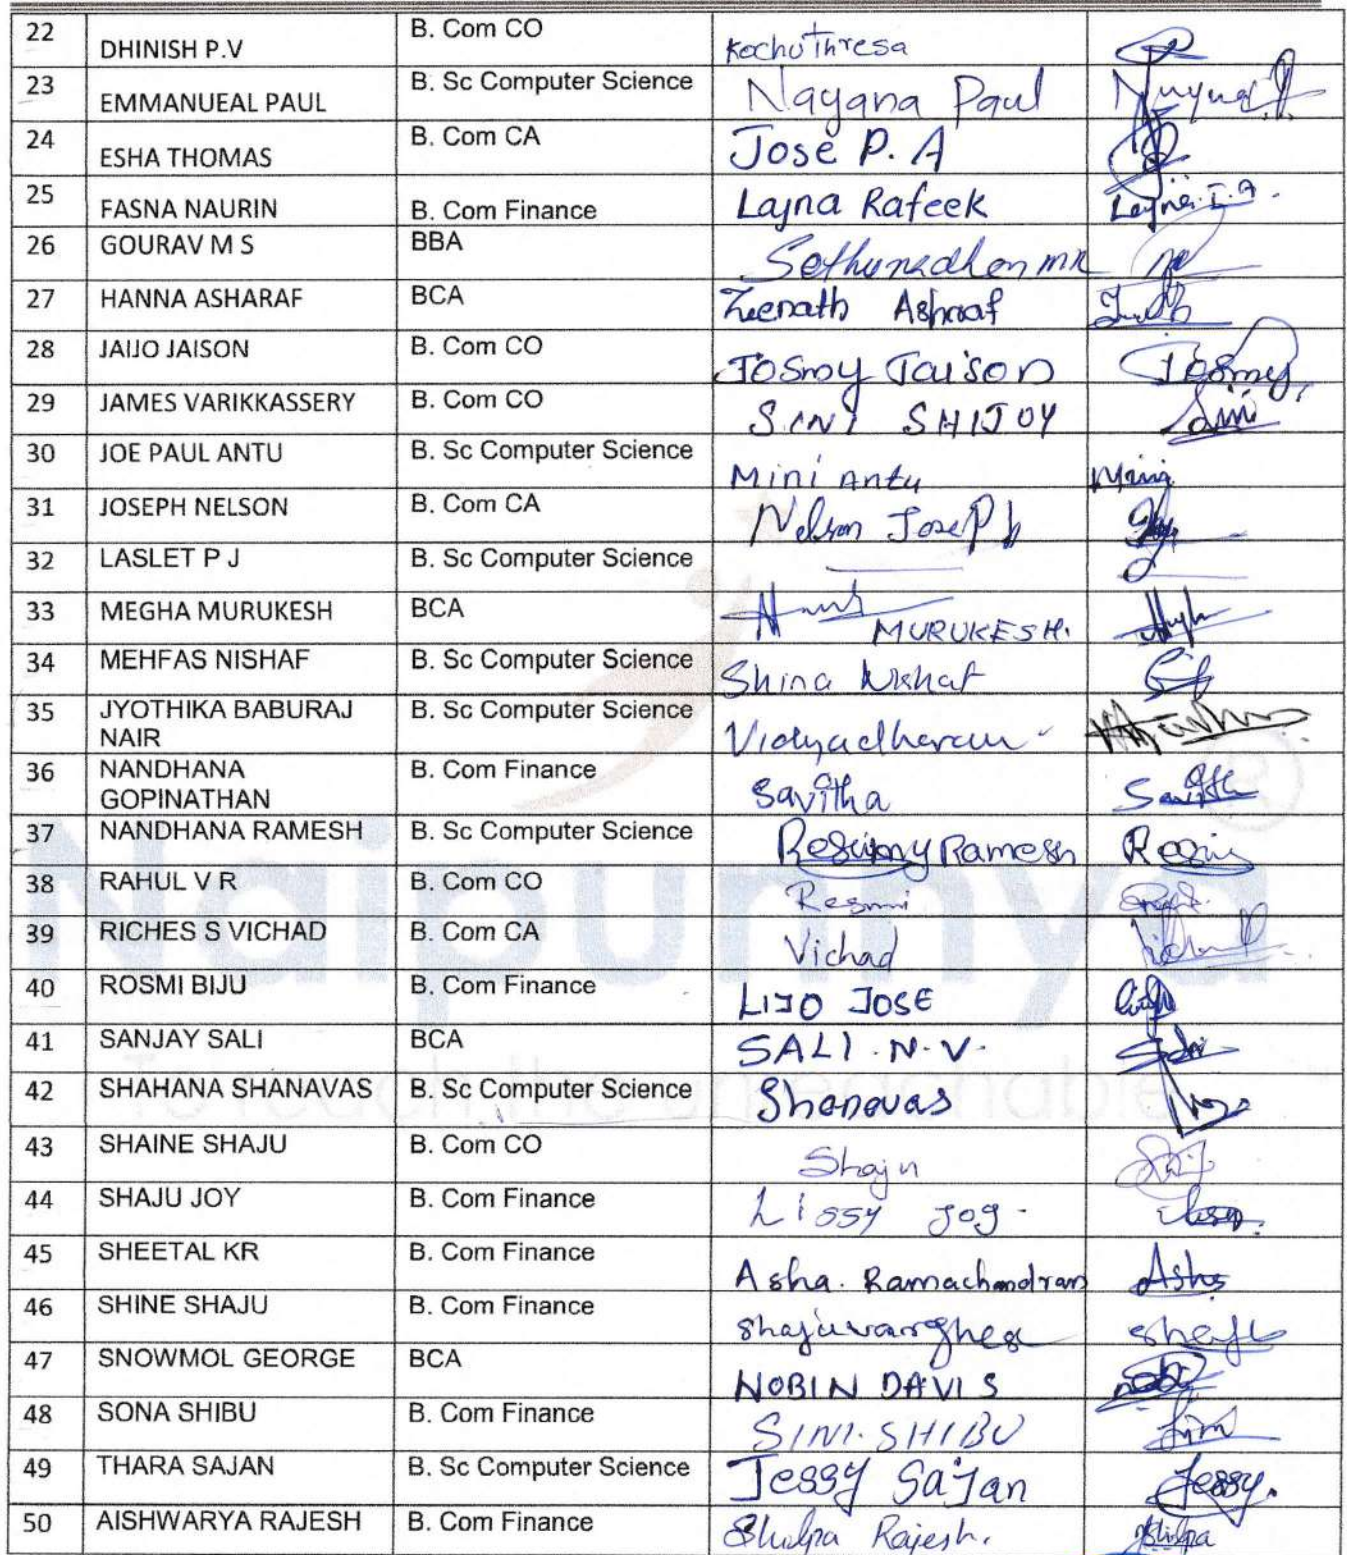 22 DHINISH P.V B. Com CO Kochuthresa
23 EMMANUEAL PAUL B. Sc Computer Science Nayana Paul
24 ESHA THOMAS B. Com CA Jose P. A
25 FASNA NAURIN B. Com Finance Lajna Rafeek
26 GOURAV M S BBA
27 HANNA ASHARAF BCA Zeenath Ashraf
28 JAIJO JAISON B. Com CO Josmy Jaison Josmy
29 JAMES VARIKKASSERY B. Com CO SINI SHIJOY Sini
30 JOE PAUL ANTU B. Sc Computer Science Mini Antu Mini
31 JOSEPH NELSON B. Com CA Nelson Joseph
32 LASLET P J B. Sc Computer Science
33 MEGHA MURUKESH BCA MURUKESH.
34 MEHFAS NISHAF B. Sc Computer Science Shina Nishaf
35 JYOTHIKA BABURAJ NAIR B. Sc Computer Science Vidyadharan
36 NANDHANA GOPINATHAN B. Com Finance Savitha
37 NANDHANA RAMESH B. Sc Computer Science Ramesh
38 RAHUL V R B. Com CO Resmi
39 RICHES S VICHAD B. Com CA Vichad
40 ROSMI BIJU B. Com Finance LIJO JOSE
41 SANJAY SALI BCA SALI . N. V.
42 SHAHANA SHANAVAS B. Sc Computer Science Shanavas
43 SHAINE SHAJU B. Com CO Shaju
44 SHAJU JOY B. Com Finance Lissy Joy
45 SHEETAL KR B. Com Finance Asha. Ramachandran Asha
46 SHINE SHAJU B. Com Finance Shajuvarghese Shaju
47 SNOWMOL GEORGE BCA NOBIN DAVIS
48 SONA SHIBU B. Com Finance SINI. SHIBU
49 THARA SAJAN B. Sc Computer Science Jessy Sajan Jessy.
50 AISHWARYA RAJESH B. Com Finance Shilpa Rajesh. Shilpa
Naipunnya
To reach the unreachable